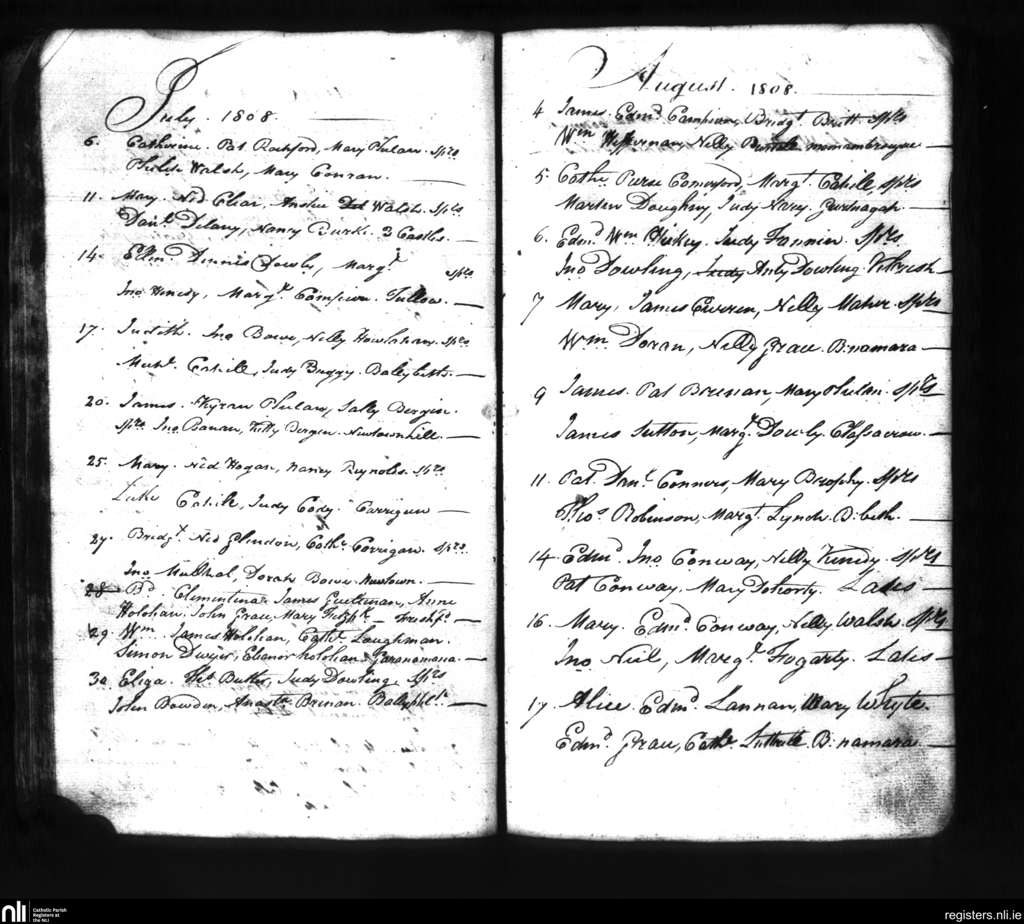 July. 1808.
6. Catherine. Pat Rochford, Mary Phelan. Sprs
Philip Walsh, Mary Conran.
11. Mary. Ned Clear, Walsh. Sprs
Danl. Delany, Nancy Burke. 3 Castles.
14. Edmd. Dennis Dowly, Margt. Sprs
Jno Henedy, Margt. Campion. Tullow.
17. Judith. Jno Bowe, Nelly Houlahan. Sprs
Cahill, Judy Buggy.
20. James. Kyran Phelan, Sally Bergin.
Sprs Jno Banan, Kitty Bergen. Newtownhill.
25. Mary. Ned Hogan, Nancy Reynolds. Sprs
Luke Cahill, Judy Cody. Carrigeen
27. Bridgt. Ned Glendon, Cathe. Corrigan. Sprs.
Jno. Mulhal, Dorah Bowe. Newtown.
28 Bd. Clementina James Anne
Holohan. John Grace, Mary Fitzpk. Freshfd.
29. Wm. James Holohan, Cathe. Loughman.
Simon Dwyer, Eleanor Holohan.
30 Eliza. Butler, Judy Dowling. Sprs
John Bowden, Anasta Brenan.
August. 1808.
4 James. Edmd. Campion, Bridgt. Britt. Sprs
Wm Heffernan, Nelly
5. Cathe. Pierse Comerford, Margt. Cahill. Sprs
Martin Doughiny, Judy Nary.
6. Edmd. Wm Hickey. Judy Fannin. Sprs.
Jno Dowling, Judy Anty Dowling.
7 Mary, James Curren, Nelly Maher. Sprs
Wm. Doran, Nelly Grace. B:namara
9 James. Pat Brenan, Mary Phelan. Sprs
James Sutton, Margt. Dowly.
11. Pat. Danl. Connors, Mary Brophy. Sprs
Thos. Robinson, Margt. Lynch. B:beth.
14. Edmd. Jno. Conway, Nelly Kenedy. Sprs
Pat Conway, Mary Dohorty. Lates
16. Mary. Edmd. Conway, Nelly Walsh. Sprs.
Jno Niel, Margt. Fogarty. Lates
17. Alice. Edmd. Lannan, Mary Whyte.
Edmd. Grace, Cathe. B:namara
nli
Catholic Parish
Registers at
the NLI
registers.nli.ie